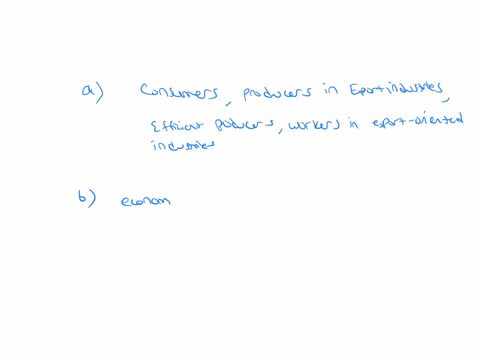 a) Consumers, producers in Export industries,
Efficient producers, workers in export-oriented
industries
b) econom